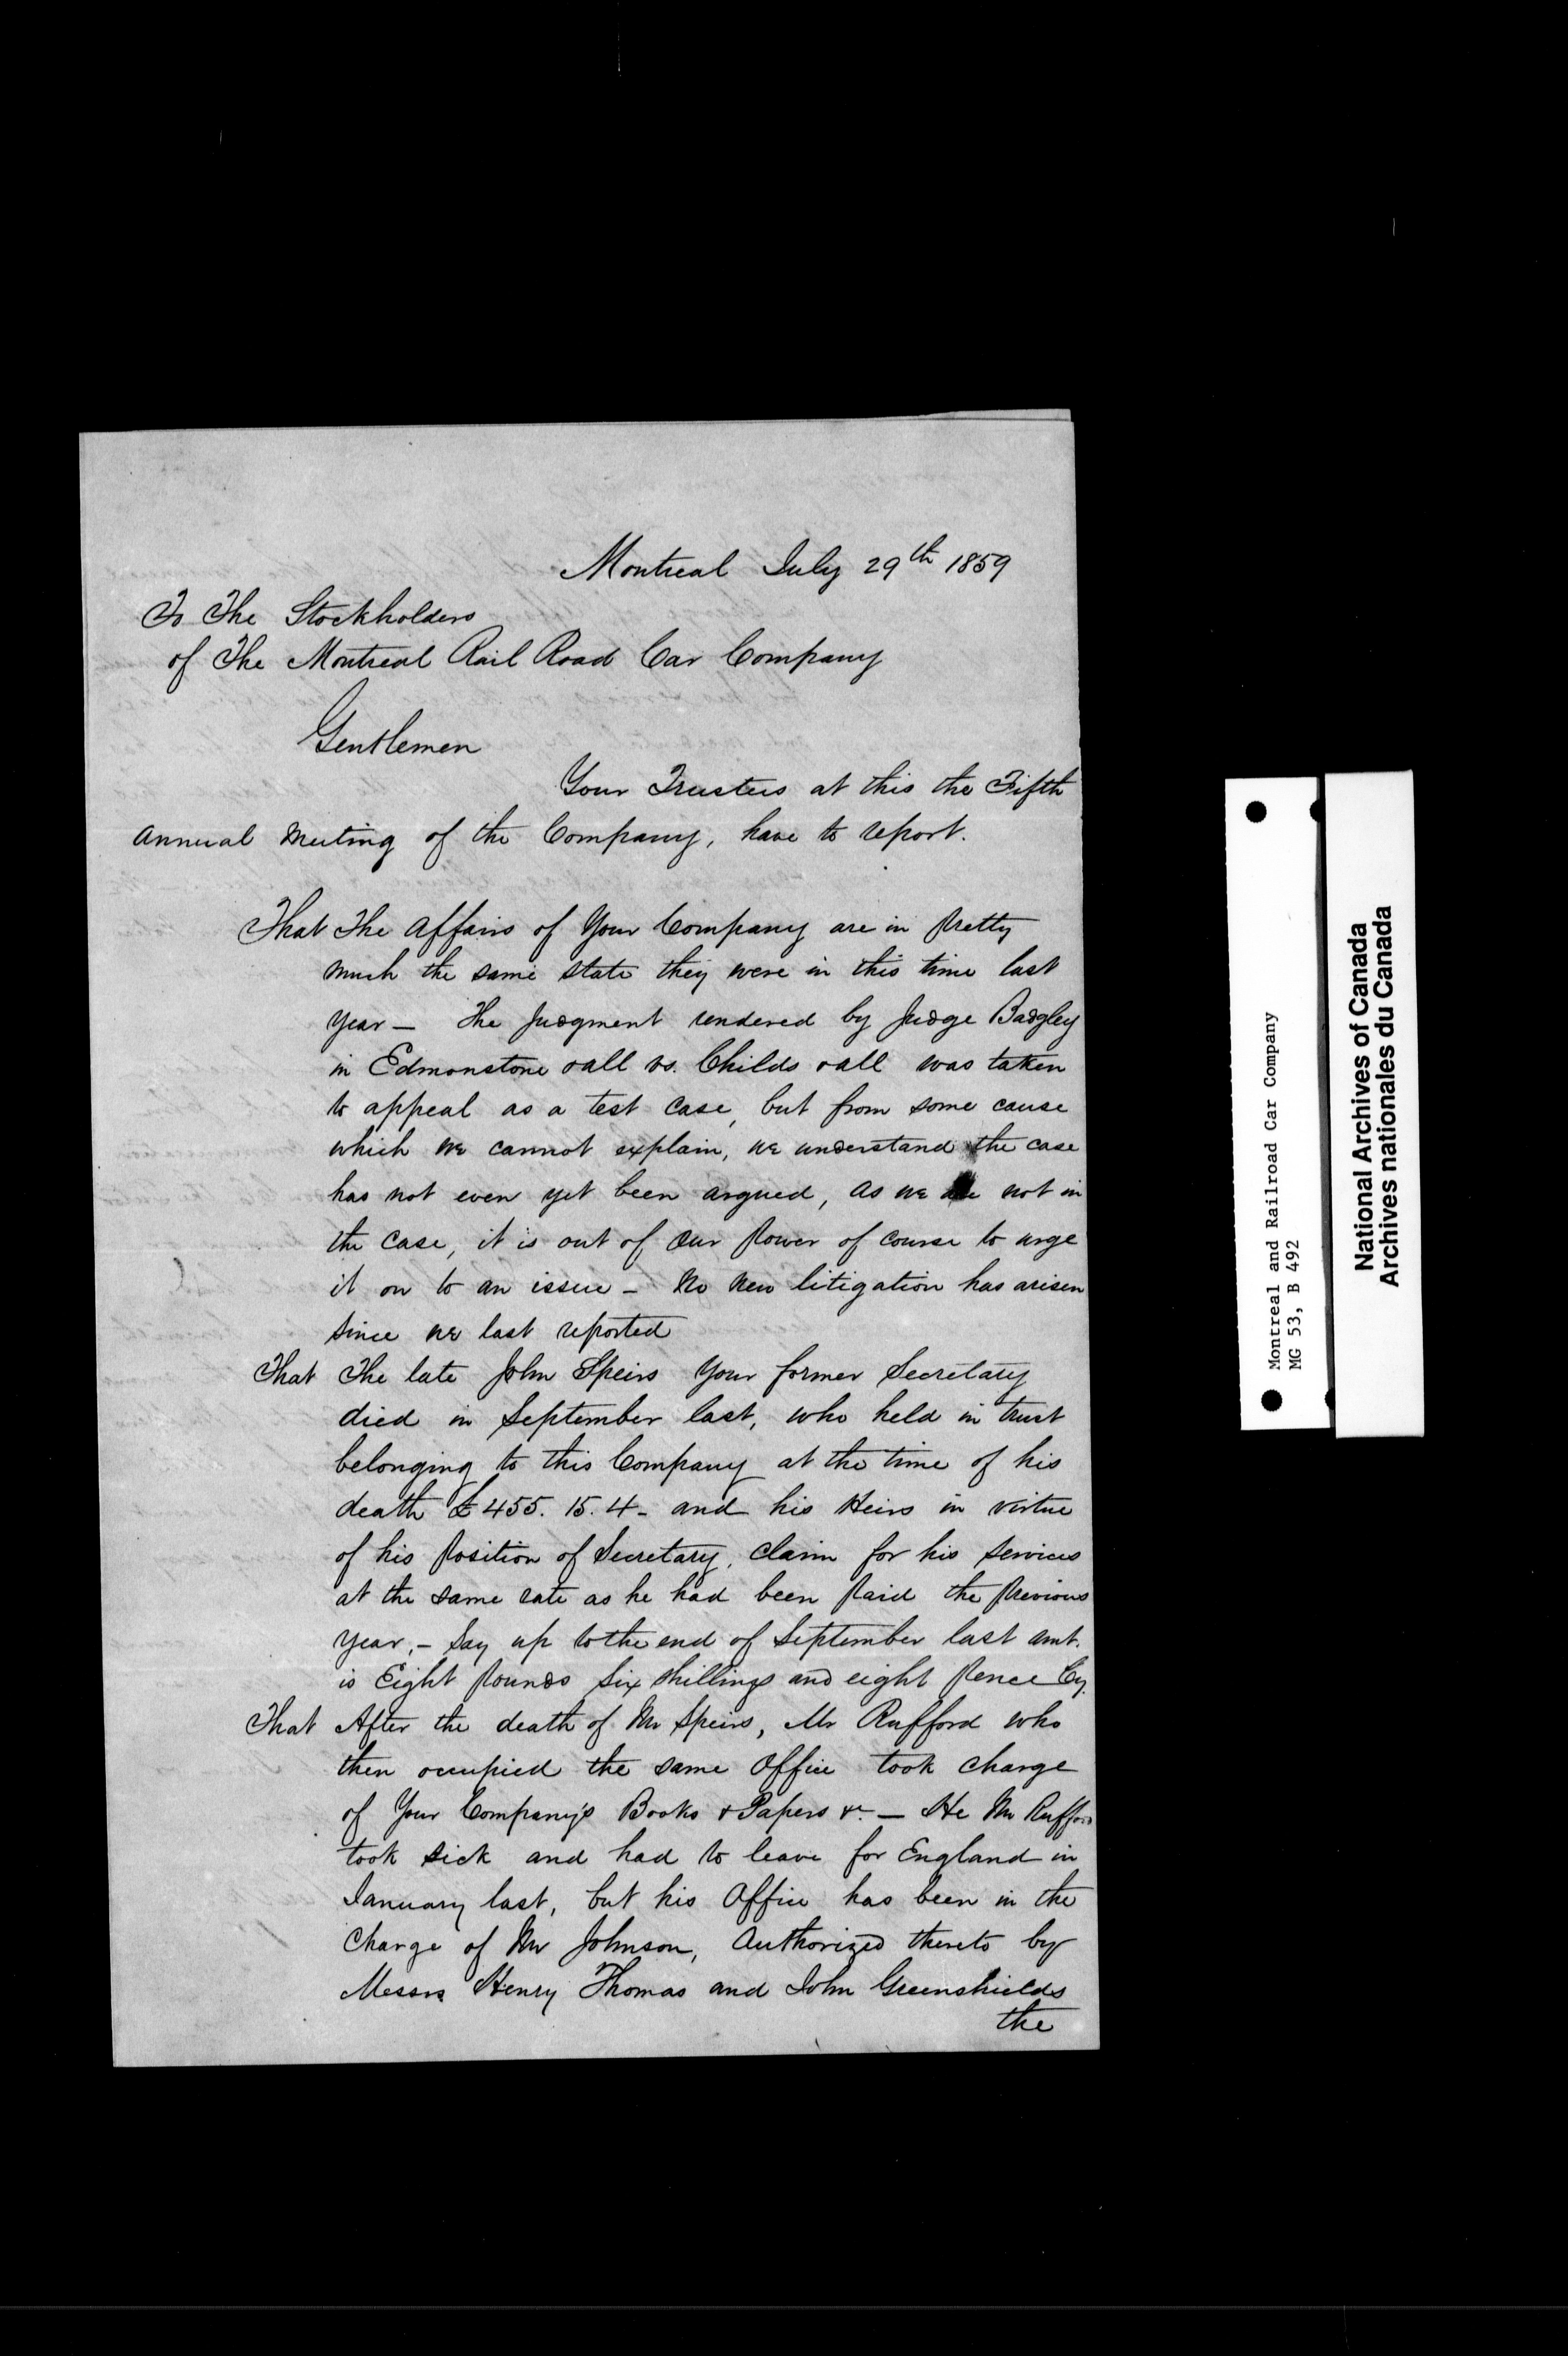 Montreal July 29th 1859
To The Stockholders
of The Montreal Rail Road Car Company
Gentlemen
Your Trustees at this the Fifth
annual Meeting of the Company, have to report.
That The Affairs of Your Company are in pretty
much the same state they were in this time last
year — The Judgment rendered by Judge Badgley
in Edmonstone & all vs. Childs & all was taken
to appeal as a test case, but from some cause
which we cannot explain, we understand the case
has not even yet been argued, as we are not in
the case, it is out of our power of course to urge
it on to an issue — No new litigation has arisen
since we last reported
That The late John Speirs Your former Secretary
died in September last, who held in trust
belonging to this Company at the time of his
death £455. 15. 4 - and his Heirs in virtue
of his position of Secretary, claim for his services
at the same rate as he had been paid the previous
year, - Say up to the end of September last amt.
is Eight pounds six shillings and eight pence Cy.
That After the death of Mr Speirs, Mr Rufford who
then occupied the same Office took charge
of Your Company's Books & Papers &c. — He Mr Rufford
took sick and had to leave for England in
January last, but his Office has been in the
charge of Mr Johnson, Authorized thereto by
Messrs Henry Thomas and John Greenshields
the
Montreal and Railroad Car Company
MG 53, B 492
National Archives of Canada
Archives nationales du Canada